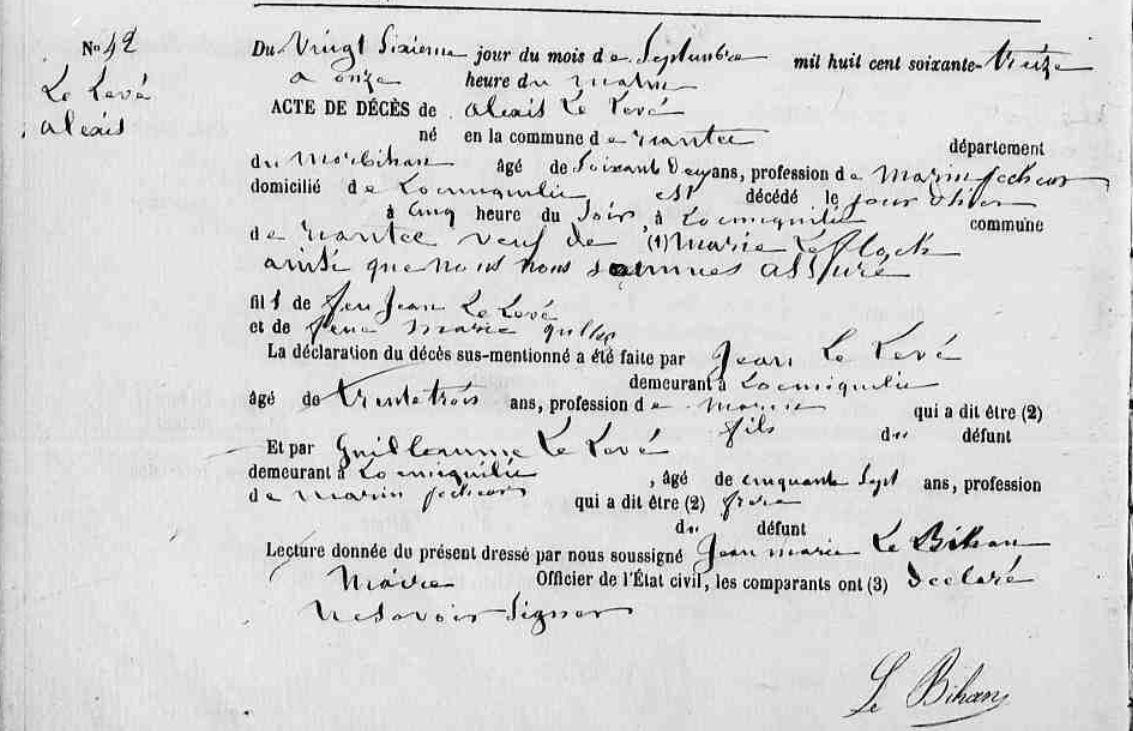 N° 42
Le Levé
alexis
Du Vingt Sixieme jour du mois de Septembre mil huit cent soixante-treize
a onze heure du matin
ACTE DE DÉCÈS de alexis Le Levé
né en la commune de riantec
département
du Morbihan âgé de Soixante Deux ans, profession de Marin pecheur
domicilié de Locmiquelic est décédé le jour d'hier
à Cinq heure du Soir, à Locmiquelic commune
de riantec veuf de (1) Marie Le floch
ainsi que nous nous sommes assuré
fils de feu Jean Le Levé
et de feue marie
La déclaration du décès sus-mentionné a été faite par Jean Le Levé
demeurant à Locmiquelic
âgé de trente trois ans, profession de marin qui a dit être (2)
fils du défunt
Et par Guillaume Le Levé
demeurant à Locmiquelic, âgé de cinquante Sept ans, profession
de marin pecheur qui a dit être (2) frère
du défunt
Lecture donnée du présent dressé par nous soussigné Jean marie Le Bihan
Maire Officier de l'État civil, les comparants ont (3) declaré
ne Savoir Signer
Le Bihan